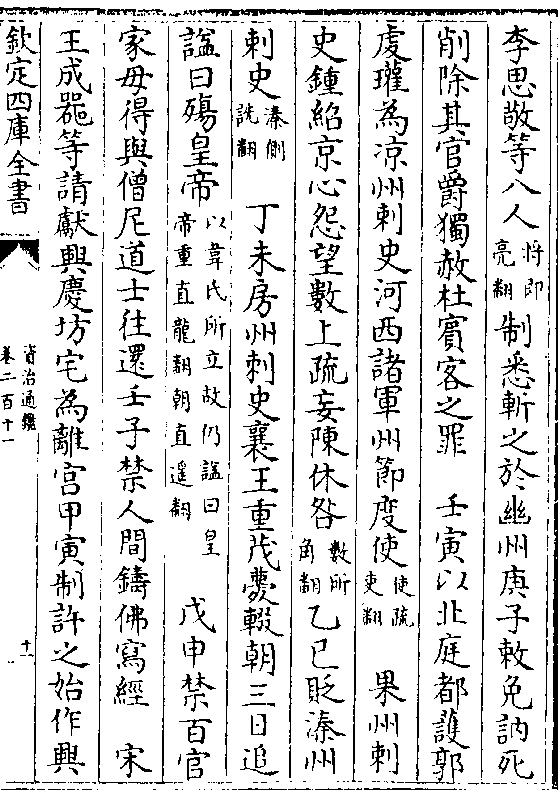 李思敬等八人將即亮翻制悉斬之於幽州庚子敕免訥死
削除其官爵獨赦杜賓客之罪　壬寅以北庭都護郭
䖍瓘為凉州刺史河西諸軍州節度使使疏吏翻　果州刺
史鍾紹京心怨望數上疏妄陳休咎數所角翻乙巳貶溱州
刺史溱側詵翻　丁未房州刺史襄王重茂薨輟朝三日追
諡曰殤皇帝以韋氏所立故仍諡曰皇帝重直龍翻朝直遥翻　戊申禁百官
家毋得與僧尼道士往還壬子禁人間鑄佛寫經　宋
王成器等請獻興慶坊宅為離宫甲寅制許之始作興
欽定四庫全書
資治通鑑
卷二百十一
十一